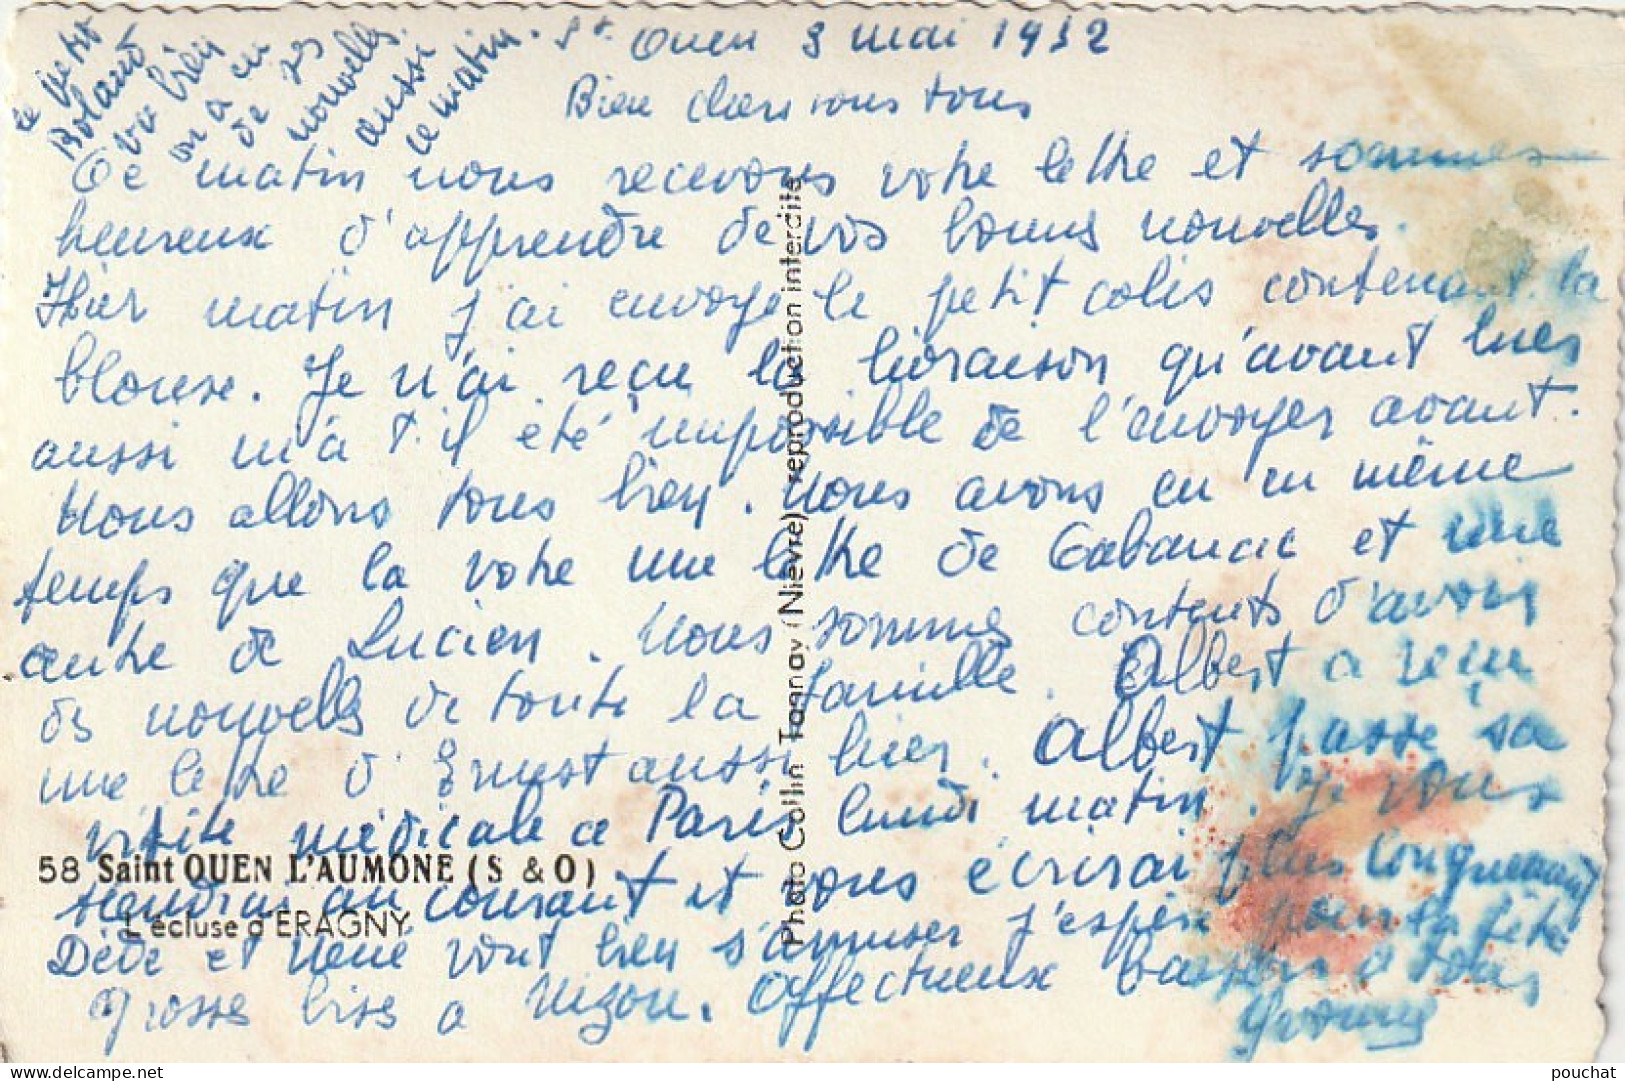 St. Ouen 3 mai 1952
Bien chers vous tous
Ce matin nous recevons votre lettre et sommes
heureux d'apprendre de vos bonnes nouvelles.
Hier matin j'ai envoyé le petit colis contenant la
blouse. Je n'ai reçu la livraison qu'avant hier
aussi m'a t'il été impossible de l'envoyer avant.
Nous allons tous bien. Nous avons eu en même
temps que la votre une lettre de Cabanac et une
autre de Lucien. Nous sommes contents d'avoir
des nouvelles de toute la famille. Albert a reçu
une lettre d'Ernest aussi hier. Albert passe sa
visite médicale a Paris lundi matin. Je vous
tiendrai au courant et vous écrirai plus longuement
Dédé et Néné vont bien s'amuser j'espère pour la fête.
grosses bises a Nizou. Affectueux baisers a tous
Yvonne
le petit
Roland
va bien
on a eu
de ses
nouvelles
aussi
ce matin.
58 Saint OUEN L'AUMONE (S & O)
L'écluse d'ERAGNY
Photo Collin Tannay (Nièvre) reproduction interdite
pouchat